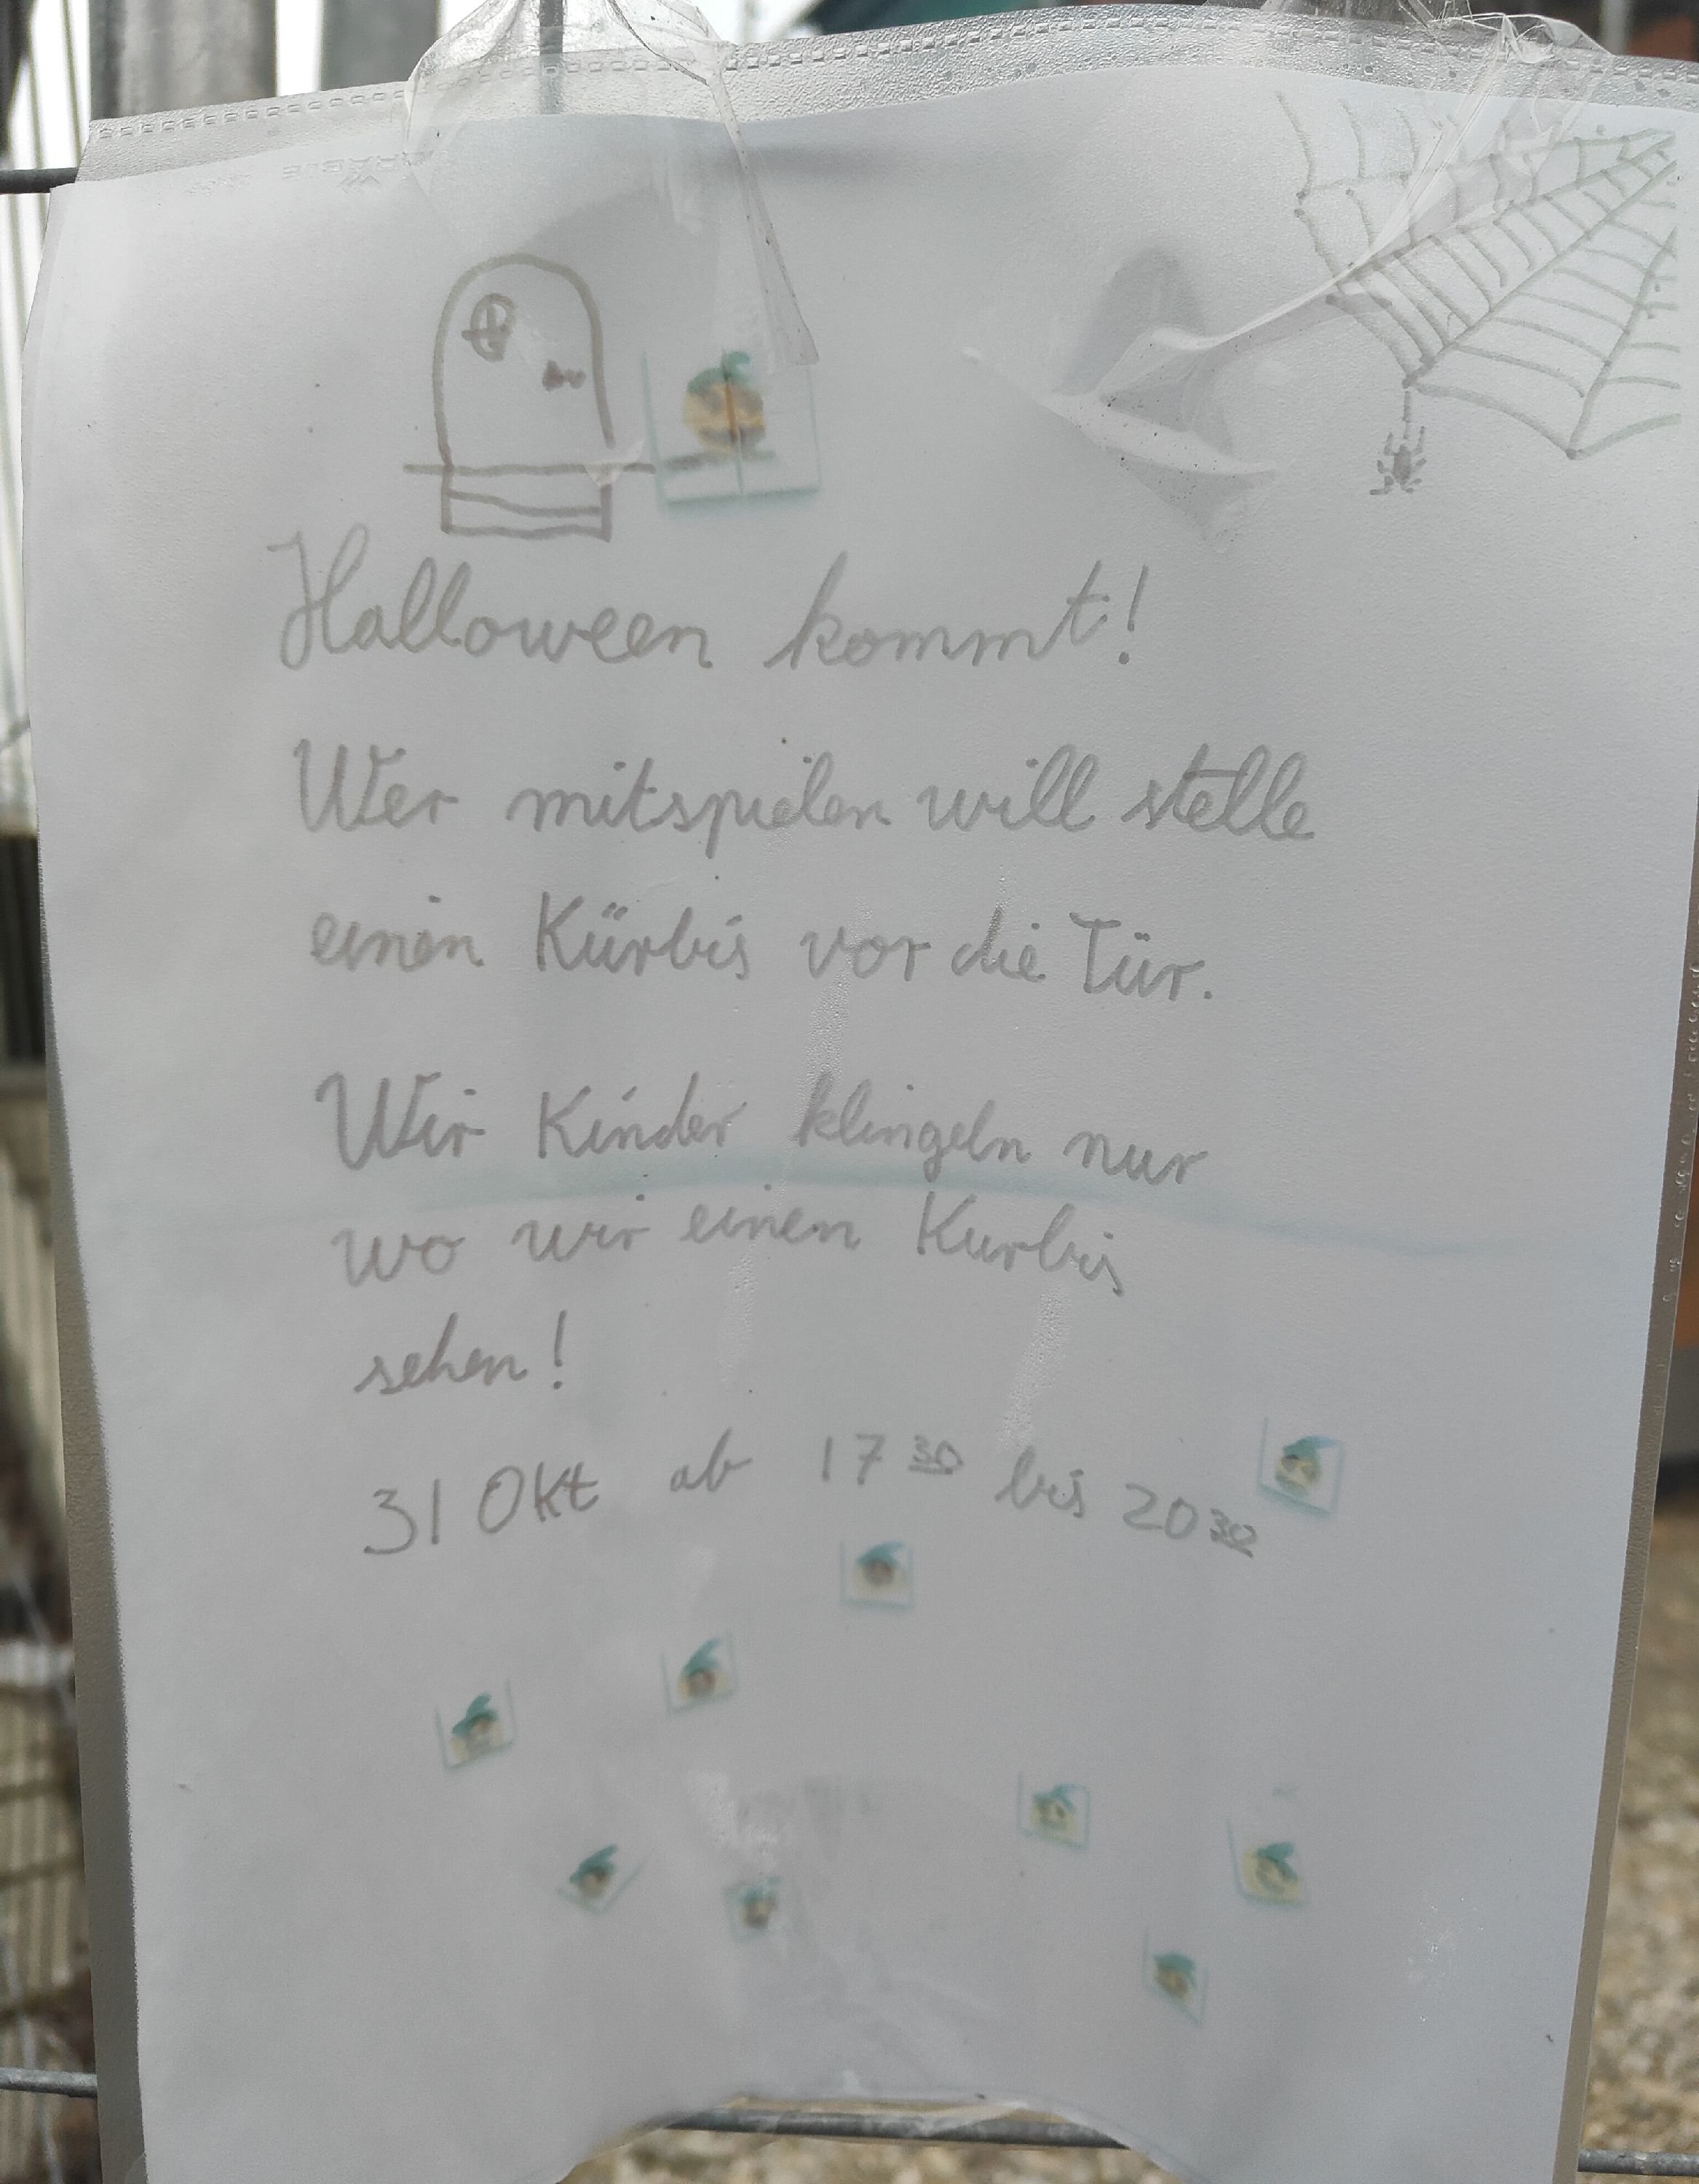 Halloween kommt!
Wer mitspielen will stelle
einen Kürbis vor die Tür.
Wir Kinder klingeln nur
wo wir einen Kurbis
sehen!
31 Okt ab 17 30 bis 20 30